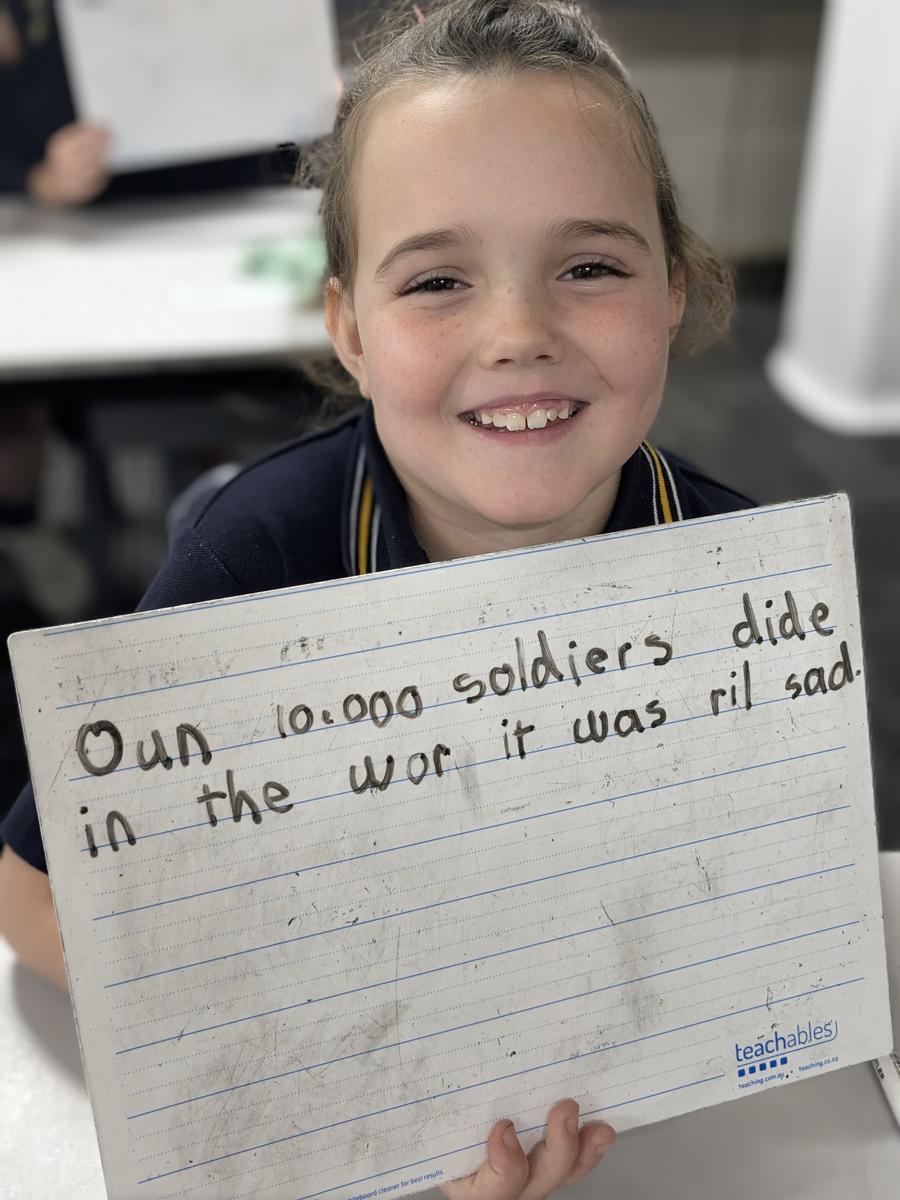 Oun 10.000 soldiers dide
in the wor it was ril sad.
teachables
teaching.com.au teaching.co.nz
whiteboard cleaner for best results.